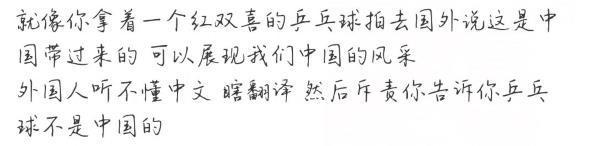 就像你拿着一个红双喜的乒乓球拍去国外说这是中
国带过来的 可以展现我们中国的风采
外国人听不懂中文 瞎翻译 然后斥责你告诉你乒乓
球不是中国的